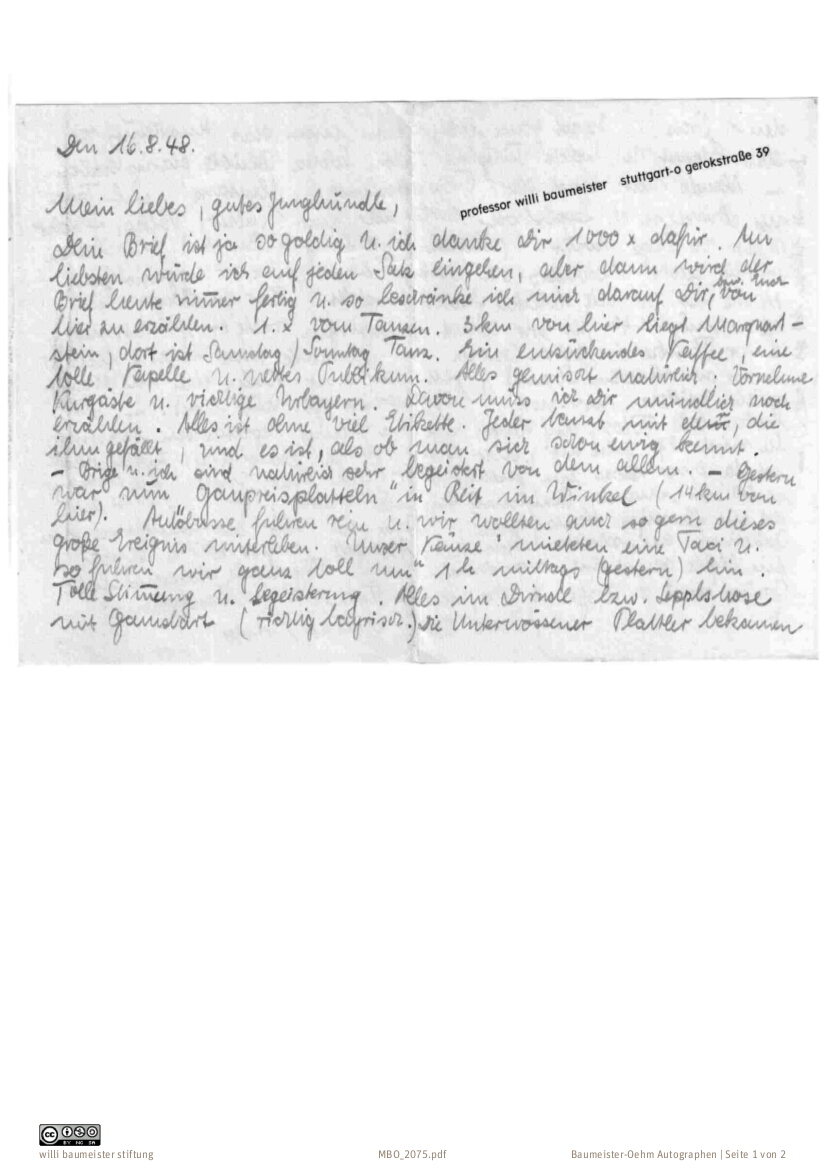 Den 16.8.48.
professor willi baumeister stuttgart-o gerokstraße 39
Mein liebes, gutes Junghündle,
Dein Brief ist ja so goldig u. ich danke Dir 1000 x dafür. Am
liebsten würde ich auf jeden Satz eingehen, aber dann wird der
Brief heute nim̄er fertig u. so beschränke ich mich darauf Dir, bzw. Euch von
hier zu erzählen. 1. x vom Tanzen. 3 km von hier liegt Marquart-
stein, dort ist Samstag/Sonntag Tanz. Ein entzückendes Kaffee, eine
tolle Kapelle u. nettes Publikum. Alles gemischt natürlich. Vornehme
Kurgäste u. wichtige Urbayern. Davon muss ich Dir mündlich noch
erzählen. Alles ist ohne viel Etikette. Jeder tanzt mit der, die
ihm gefällt, und es ist, als ob man sich schon ewig kennt.
– u. ich sind natürlich sehr begeistert von dem allem. – Gestern
war nun "Gaupreisplatteln" in Reit im Winkel (14 km von
hier). Autobusse fuhren rein u. wir wollten auch so gern dieses
große Ereignis miterleben. Unser mieteten eine Taxi u.
so fuhren wir ganz toll um 1 h mittags (gestern) hin.
Tolle Stim̄ung u. Begeisterung. Alles im Dirndl bzw. Sepplshose
mit Gamsbart (richtig bayrisch.) Die Unterwössener Plattler bekamen
willi baumeister stiftung
MBO_2075.pdf
Baumeister-Oehm Autographen | Seite 1 von 2
CC BY NC SA